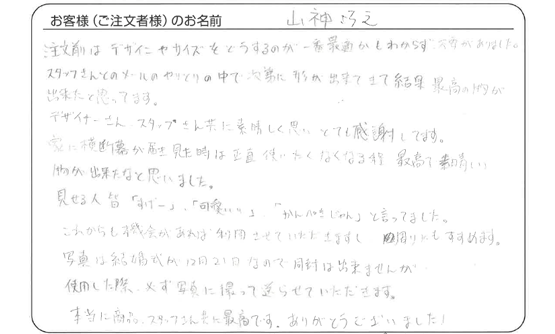 お客様（ご注文者様）のお名前 山神
注文前は デザインやサイズを どうするのが一番最適かもわからず 不安がありました。
スタッフさんとのメールのやりとりの中で次第に形が出来てきて結果 最高の物が
出来たと思ってます。
デザイナーさん、スタッフさん共に素晴しく思い とても感謝してます。
実に横断幕が届き見た時は正直 使いたくなくなる程 最高で素晴しい
物が出来たなと思いました。
見せる人皆「すげー」、「可愛いい」「かんぺきじゃん」と言ってました。
これからも機会があれば利用させていただきますし 周りにもすすめます。
写真は結婚式が12月21日なので同封は出来ませんが
使用した際、必ず写真に撮って送らせていただきます。
本当に商品、スタッフさん共に最高です。ありがとうございました！